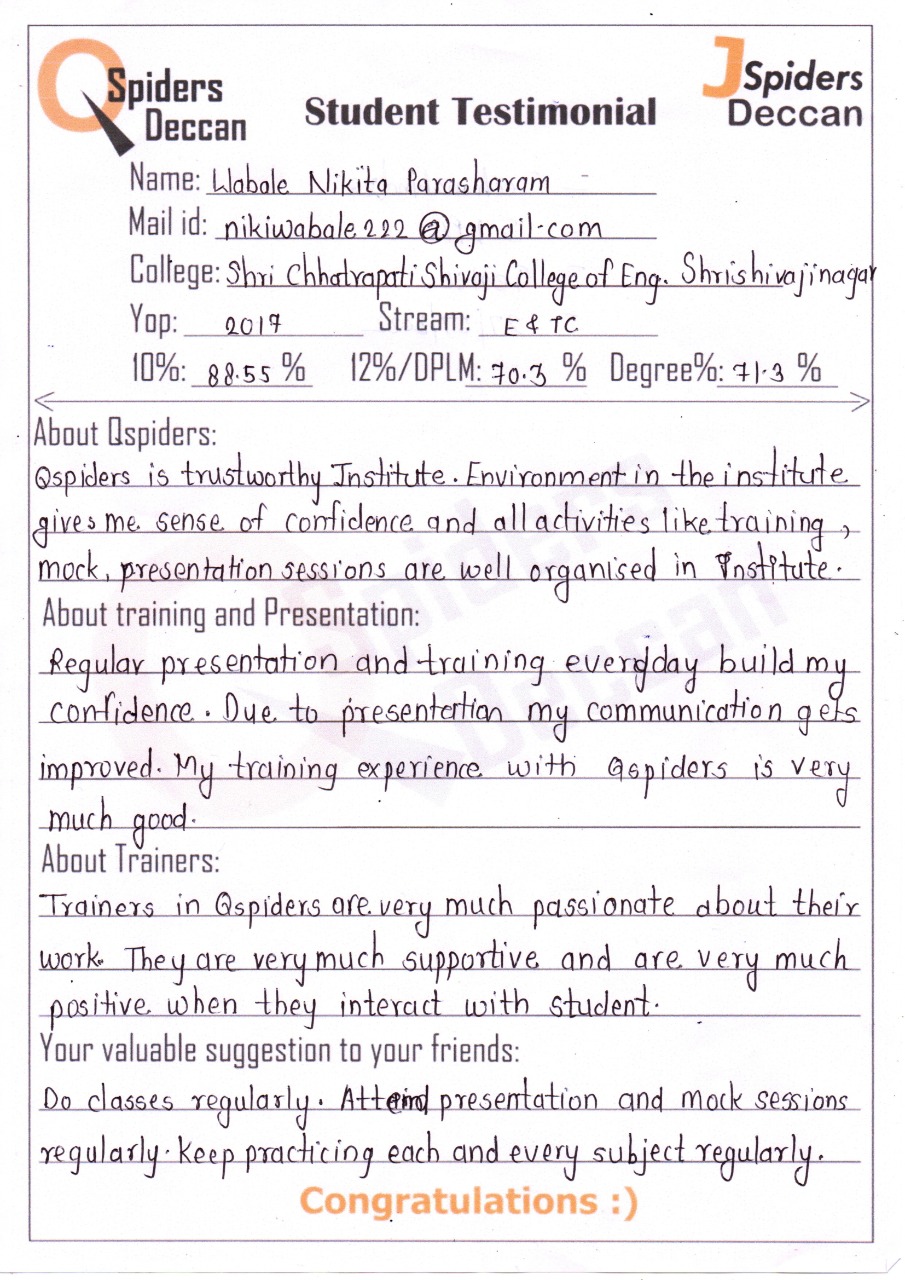 QSpiders
Deccan
Student Testimonial
JSpiders
Deccan
Name: Wabale Nikita Parasharam
Mail id: nikiwabale222@gmail.com
College: Shri Chhatrapati Shivaji College of Eng. Shrishivajinagar
Yop: 2017 Stream: E & TC
10%: 88.55 % 12%/DPLM: 70.3 % Degree%: 71.3 %
About Qspiders:
Qspiders is trustworthy Institute. Environment in the institute
gives me sense of confidence and all activities like training,
mock, presentation sessions are well organised in Institute.
About training and Presentation:
Regular presentation and training everyday build my
confidence. Due to presentation my communication gets
improved. My training experience with Qspiders is very
much good.
About Trainers:
Trainers in Qspiders are very much passionate about their
work. They are very much supportive and are very much
positive when they interact with student.
Your valuable suggestion to your friends:
Do classes regularly. Attend presentation and mock sessions
regularly. Keep practicing each and every subject regularly.
Congratulations :)